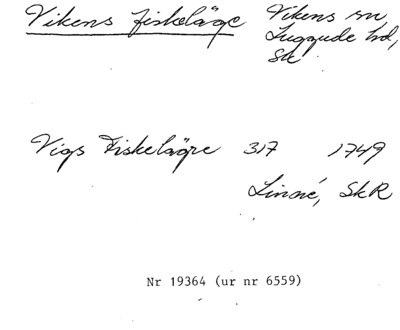 Vikens fiskeläge Vikens sn,
Luggude hd,
Sk
Vigs Fiskeläge 317 1749
Linné, SkR
Nr 19364 (ur nr 6559)